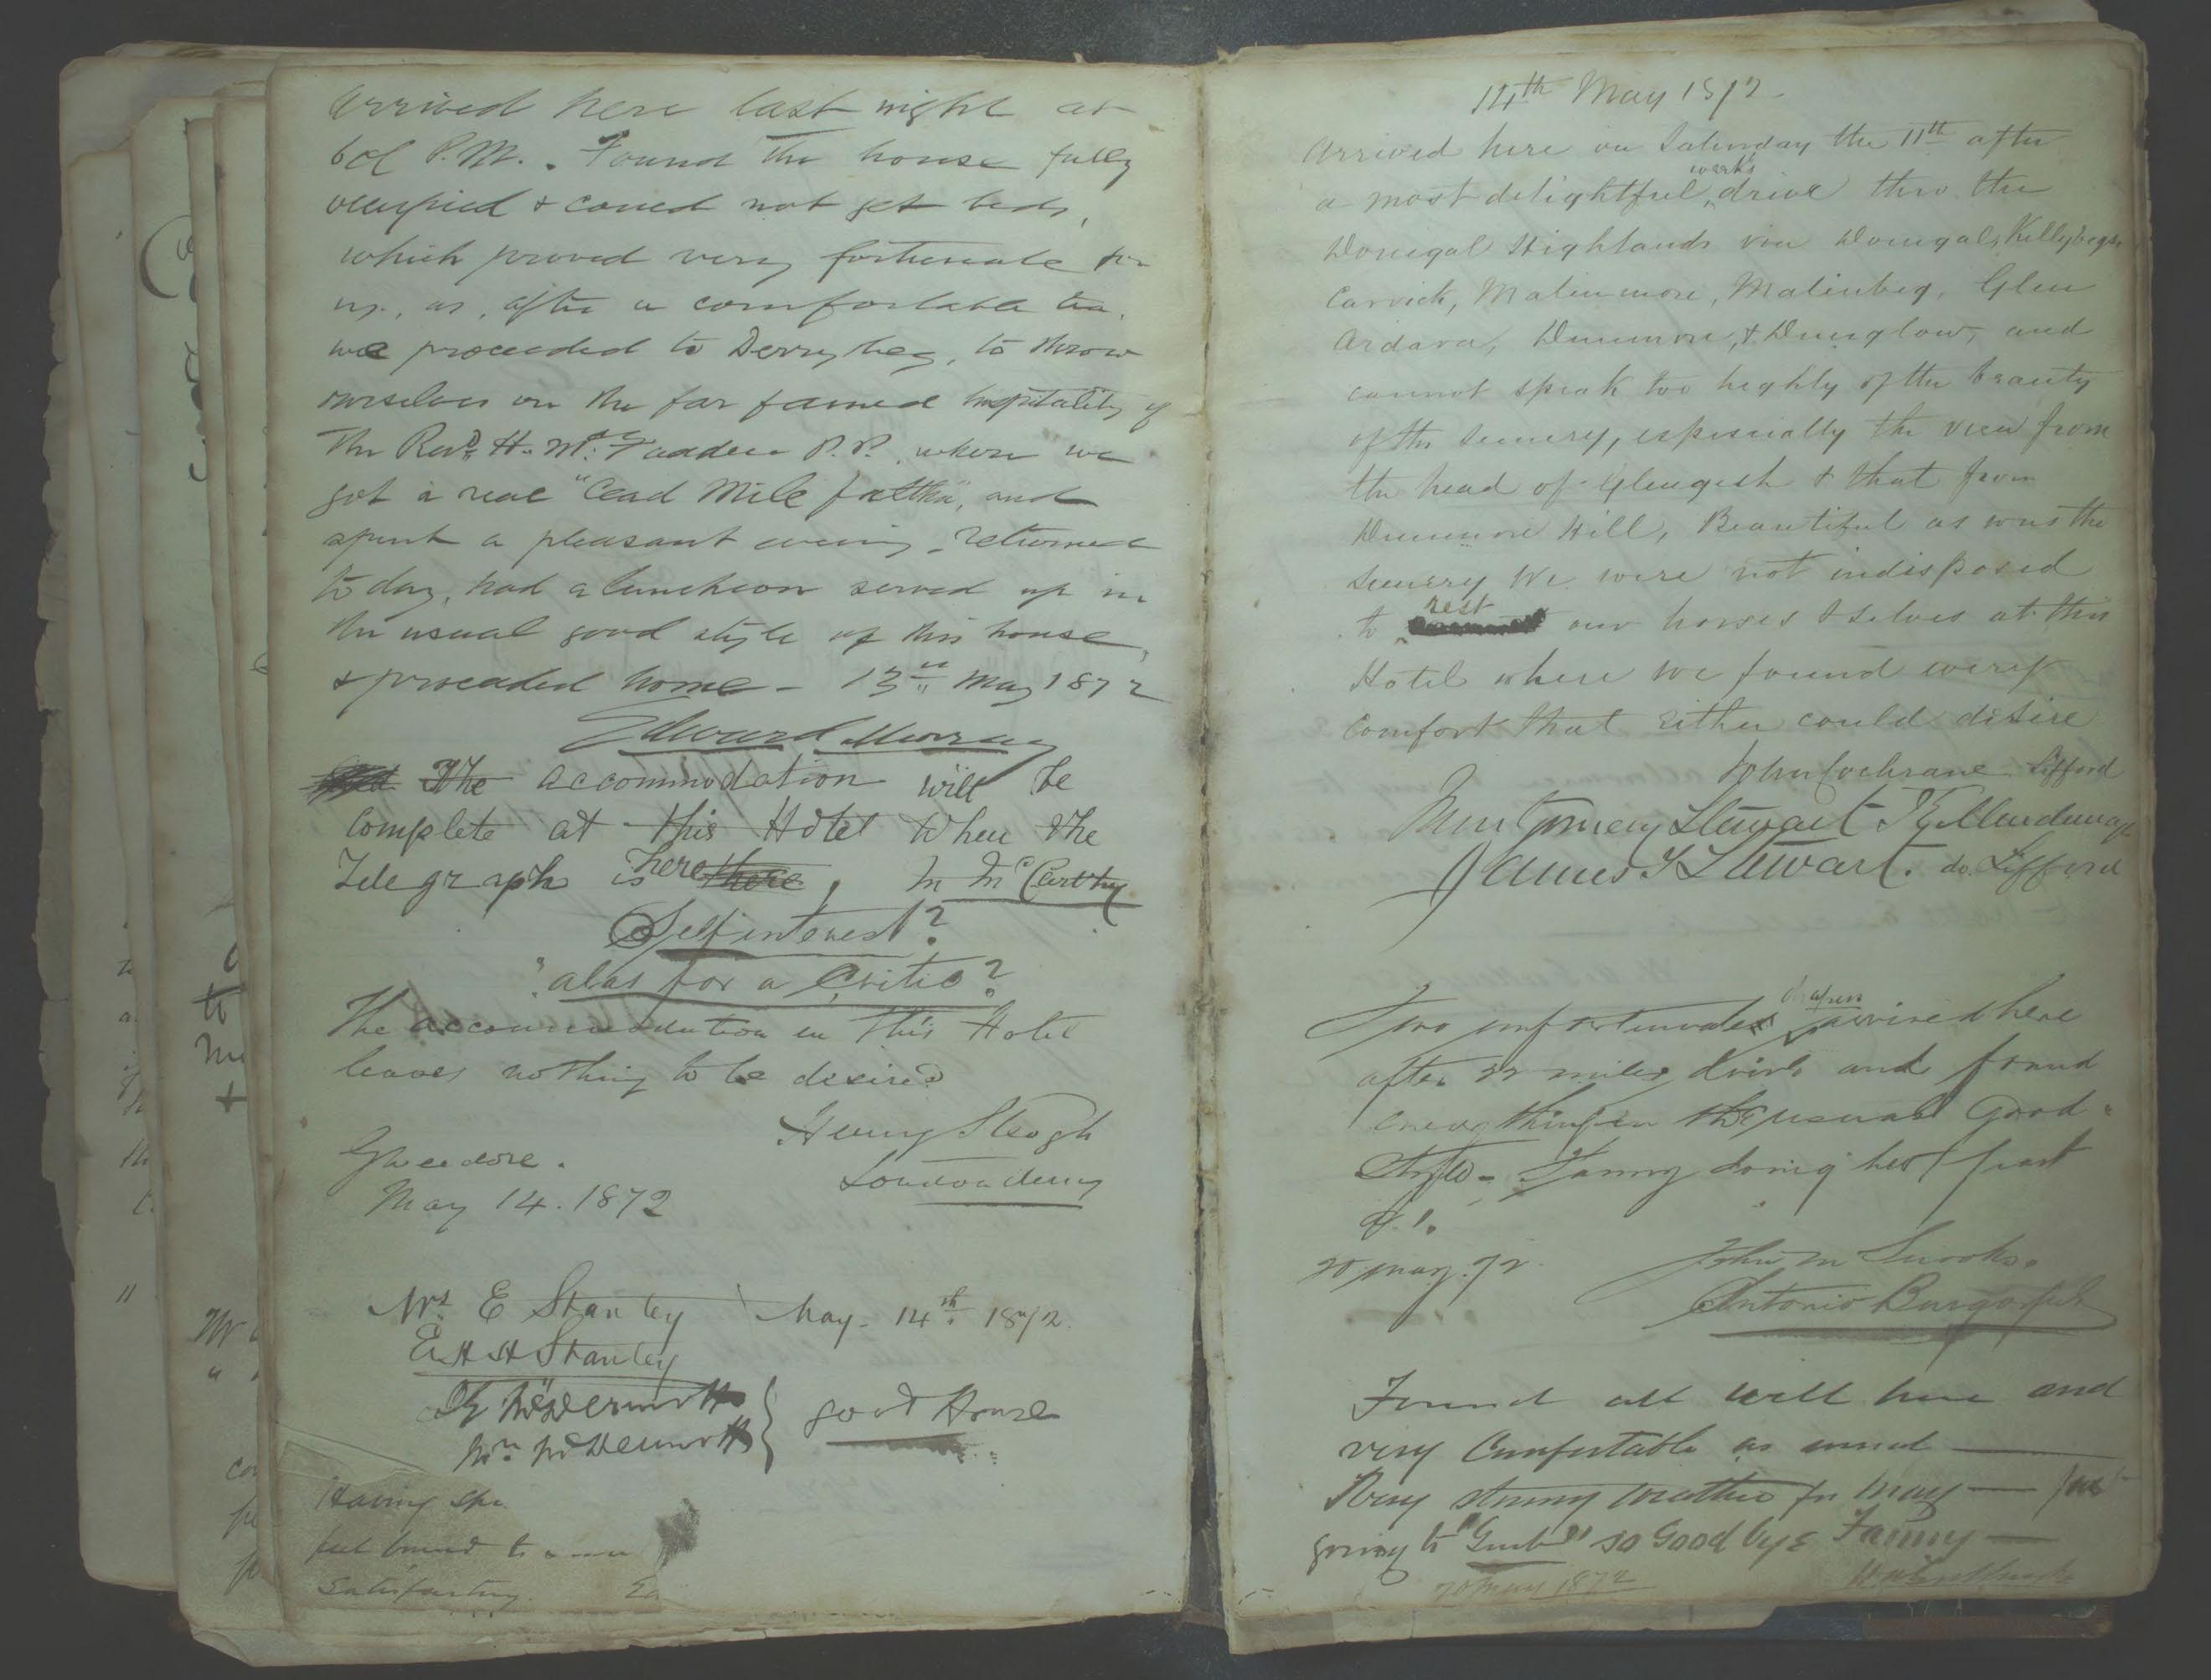 Arrived here last night at
6 ocl P.M. Found the house fully
occupied & coued not get beds,
which proved very fortunate for
us, as, after a comfortable tea,
we proceeded to Derrybeg, to throw
ourselves on the far famed hospitality of
The Revd. H. McFadden P.P. where we
got a real "Cead Mile failthe", and
spent a pleasant evening. returned
to day, had a luncheon served up in
the usual good style of this house,
& proceeded home - 13th May 1872
Edward Murray
The accommodation will be
complete at this Hotel when the
Telegraph is here there, M McCarthy
Self interest?
"alas for a Critic?
The accommodation in this Hotel
leaves nothing to be desired
Henry Sleogh
Londonderry
Gweedore.
May 14. 1872
Mrs. E Stanley May. 14th. 1872.
E H H Stanley
McDermott
Mrs McDermott } good House
Having spe
feel bound to
satisfactory. Ed
14th May 1872
Arrived here on Saturday the 11th after
a most delightful weeks drive thro the
Donegal Highlands via Donegal, Killybegs
Carrick, Malinmore, Malinbeg, Glen
Ardara, Dunmore, & Dunglow, and
cannot speak too highly of the beauty
of the scenery, especially the view from
the head of Glengesh & that from
Dunmore Hill, Beautiful as was the
scenery We were not indisposed
to rest our horses & selves at this
Hotel where we found every
comfort that either could desire
John Cochrane Lifford
Montgomery Stewart
James Stewart. do. Lifford
Two unfortunate chaps arrived here
after 22 miles drive and found
everything in the usual Good
Style - Fanny doing her part
A.1.
20 May. 72. John M Snooks.
Antonio
Found all well here and
very Comfortable as usual
Very stormy weather for May — just
going to so Good bye Fanny —
20 May 1872